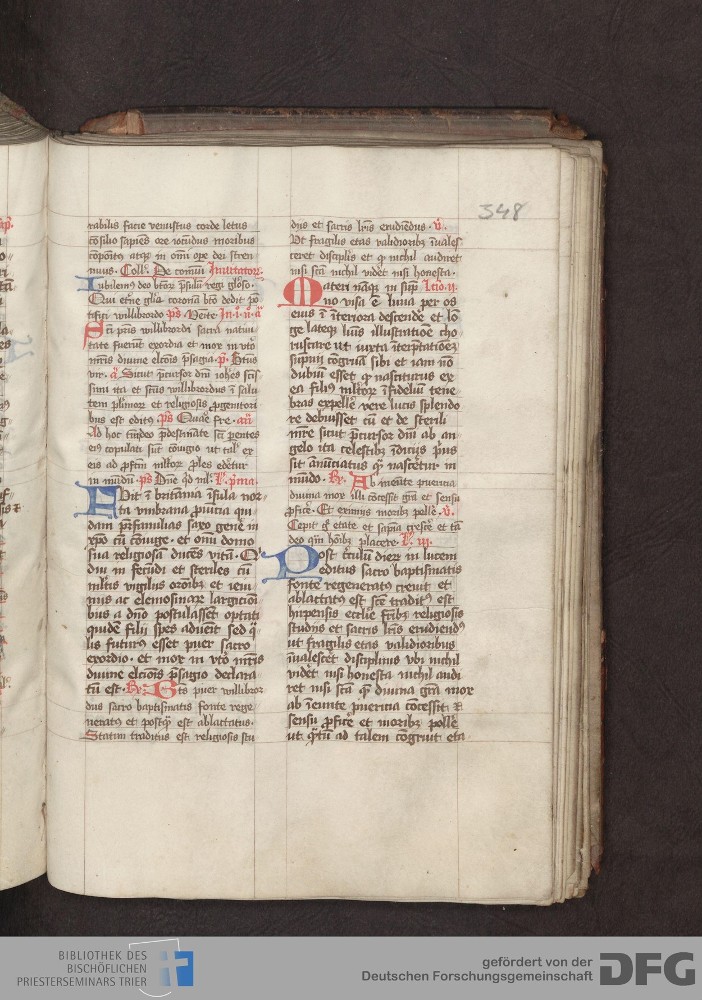 348
rabilis facie venustus corde letus
cōsilio sapiēs ore iocūdus moribus
cōpoītꝰ atqꝫ in omī ope dei stren
nuus. Coll'. De comūi Inuitatoꝝ.
Iubilemꝰ deo btoꝝ p̄sulū regi gl'oso.
Qui et̄ne gl'ia coronā bt̄o dedit pō
tifici willibrordo ps Veīte. In .i. n̄. ā
Sc̄i p̄ris willibrordi sacra natiui
tate fuerūt exordia et mox in vt'o
mr̄is diuine elcōis p̄sagia. p̄. Btūs
vir. ā. Sicut p̄cursor dn̄i ioh̄es sc̄is
simi ita et sc̄tūs willibrordus ī salu
tem pl'imoꝝ et religiosis p̄genitori
bus est editꝰ. ps Quare fre. añ
Ad hoc tm̄deo p̄destinate sūt pentes
eiꝰ copulati sūt cōiugio ut tal' ex
eis ad p̄fcm̄ ml'toꝝ p̄les edet̄ur
in mūdū. ps Dn̄e q̄d ml'. L'. pma.
Fuit ī britānia īsula nor
ta vmbrana p̄uīcia qui
dam pr̄familias saxo gene' in
xpō cū cōiuge. et omī domo
sua religiosā ducēs vitā. Qꝰ
diu in fecūdi et steriles cū
ml'tis vigiliis orōibꝫ et ieiu
niis ac elemosinaꝝ largiciōi
bus a dn̄o postulassēt optati
quidē filii spes aduēit sed q̄
lis futurꝰ esset puer sacro
exordio. et mox in vt'o mr̄is
diuine elcōis p̄sagio declara
tū est. R̄. Btūs puer willibror
dus sacro baptismatis fonte rege
neratꝰ et postqꝫ est ablactatus.
Statim traditus est religiosis stu
diis et sacris lr̄is erudiēdus. v̄.
Ut fragilis etas validioribꝫ īuales
ceret discipl'is et q̄ nichil audiret
nisi scā nichil videt nisi honesta.
Materī nāqꝫ in sūp Lcio .ii.
no visa ē luna per os
eius ī īteriora descende' et lō
ge lateqꝫ luīs illustratiōe cho
ruscare ut iuxta īterp̄tatiōeꝫ
sup̄ni cōgruā sibi et iam nō
dubiū esset q̄ nasciturus ex
ea filiꝰ ml'toꝝ ifideliū tene
bras expelle' vere lucis splendo
re debuisset cū et de sterili
mr̄e sicut p̄cursor dn̄i ab an
gelo ita celestibꝫ īdiciis p̄us
sit ānūciatus q̄ nascēt̄ur in
mūdo. R̄. Ab ineūte puericia
diuina mox illi cōcessit grā et sensu
p̄fice'. Et eximiis moribꝫ polle'. v̄.
Cepit qꝫ etate et sapia cresce' et tā
deo q̄m hoībꝫ placere. L'. iii.
Post t̄ciū diem in lucem
editus sacro baptismatis
fonte regeneratꝰ creuit et
ablactatꝰ est stc̄ traditꝰ est
hirpensis ecclie frībꝫ religiosis
studiis et sacris lr̄is erudiendꝰ
ut fragilis etas validioribus
iualescēt disciplinis vbi nichil
videt nisi honesta nichil audi
ret nisi scā q̄ diuina grā mox
ab ineunte puericia cōcessit ꝫ
sensu p̄fice' et moribꝫ polle'
ut q̄tū ad talem cōgruit eta
BIBLIOTHEK DES
BISCHÖFLICHEN
PRIESTERSEMINARS TRIER
gefördert von der
Deutschen Forschungsgemeinschaft
DFG